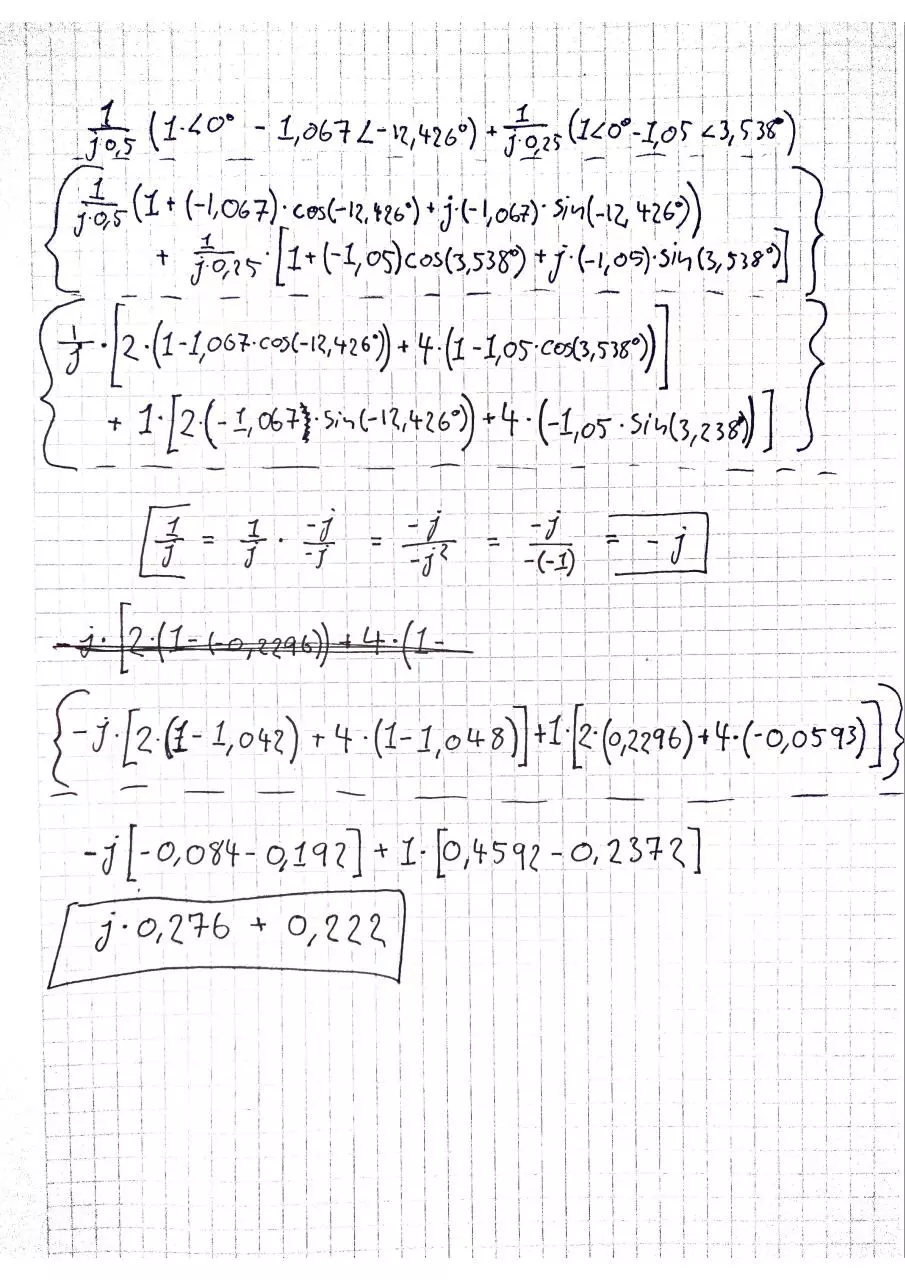 1/(j·0,5) (1·<0° - 1,067∠-12,426°) + 1/(j·0,25) (1<0°-1,05<3,538°)
{ 1/(j·0,5) (1+(-1,067)·cos(-12,426°)+j·(-1,067)·sin(-12,426°))
+ 1/(j·0,25)·[1+(-1,05)cos(3,538°)+j·(-1,05)·sin(3,538°)] }
{ 1/j·[2·(1-1,067·cos(-12,426°))+4·(1-1,05·cos(3,538°))]
+ 1·[2·(-1,067)·sin(-12,426°))+4·(-1,05·sin(3,238°))] }
1/j = 1/j · -j/-j = -j/-j² = -j/-(-1) = -j
-j·[2·(1-(-0,2296))+4·(1-
{-j·[2·(1-1,042)+4·(1-1,048)]+1·[2·(0,2296)+4·(-0,0593)]}
-j[-0,084-0,192]+1·[0,4592-0,2372]
j·0,276 + 0,222